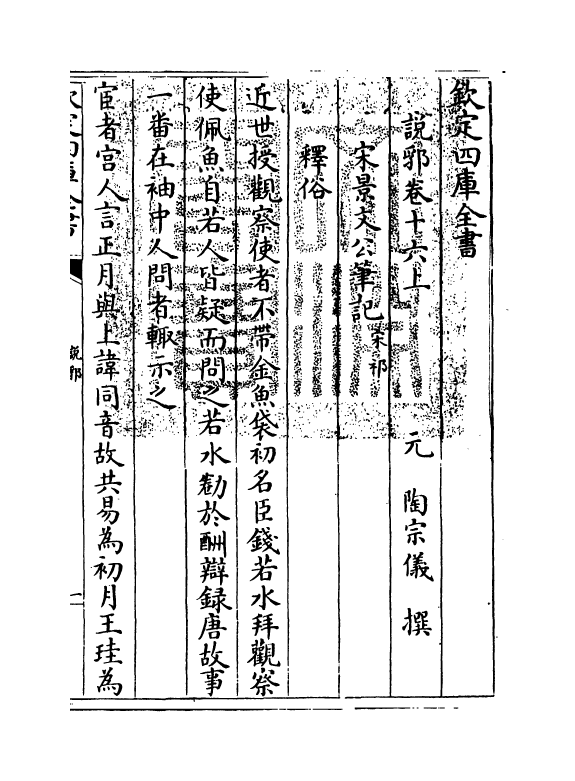 欽定四庫全書
說郛卷十六上 元 陶宗儀 撰
宋景文公筆記 宋祁
釋俗
近世授觀察使者不帶金魚袋初名臣錢若水拜觀察
使佩魚自若人皆疑而問之若水勸於酬辯録唐故事
一番在袖中人問者輙示之
宦者宫人言正月與上諱同音故共易為初月王珪為
欽定四庫全書
說郛
一